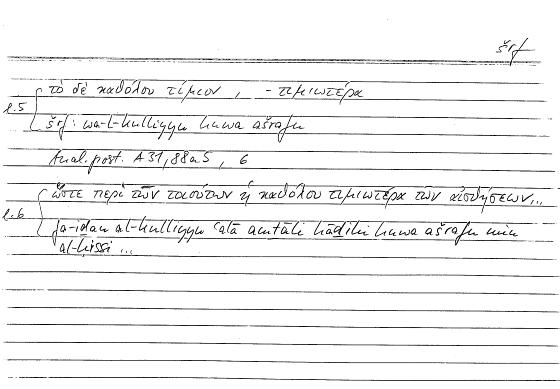 šrf
τὸ δὲ καθόλου τίμιον, - τιμιωτέρα
l.5
šrf: wa-l-kullīyu huwa ašrafu
Anal. post. A 31, 88a5, 6
ὥστε περὶ τῶν τοιούτων ἡ καθόλου τιμιωτέρα τῶν αἰσθήσεων...
l.6
fa-iḏan al-kullīyu ʿalā amṯāli hāḏihi huwa ašrafu min
al-ḥissi ...